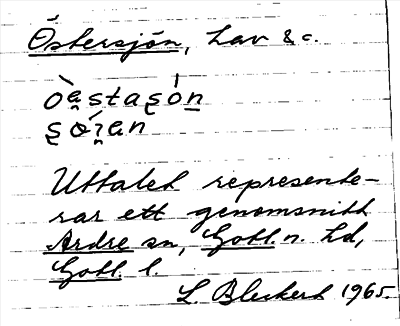 Östersjön, Lau &c.
òęstaʂòn
ʂøɿan
Uttalet represente-
rar ett genomsnitt
Ardre sn, Gotl. n. hd,
Gotl. l.
L. Bleckert 1965.